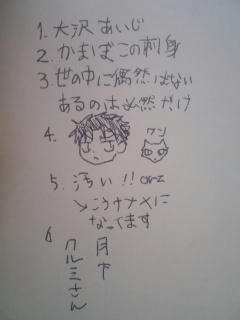 1. 大沢あいじ
2. かまぼこの刺身
3. 世の中に偶然はない
あるのは必然だけ
4.
ワン
5. 汚い!! orz
↘こうナナメに
なってます
6
月下
クルミさん